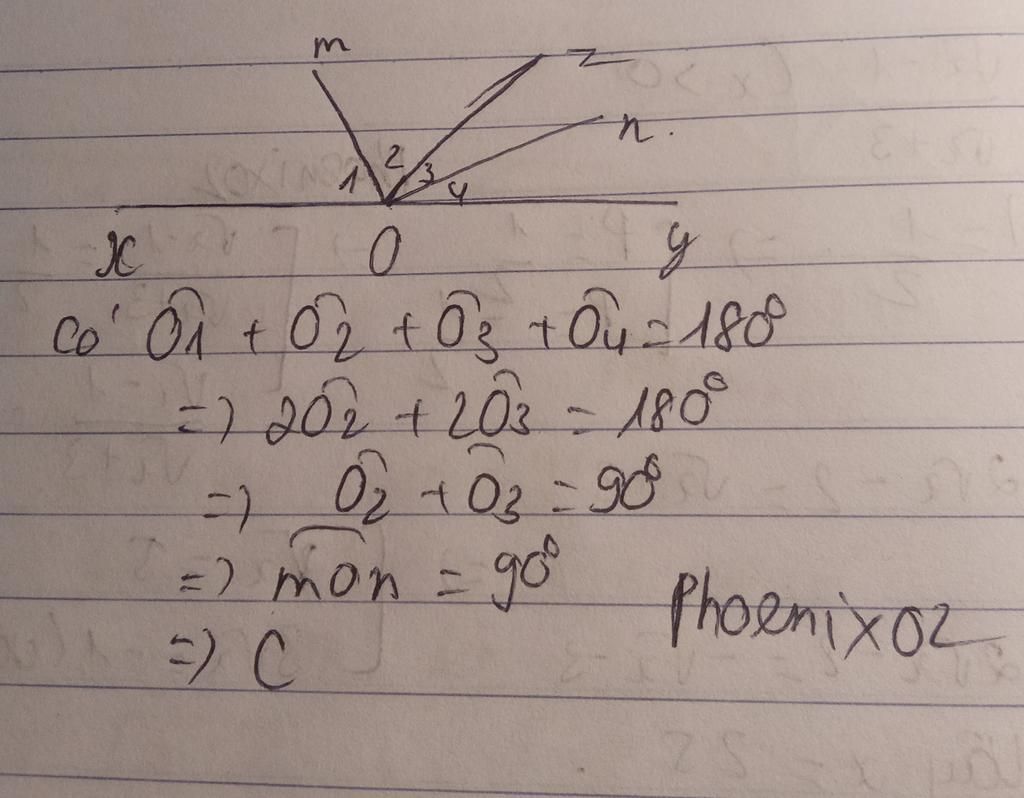 m
z
n.
1 2 3 4
x O y
có Ô1 + Ô2 + Ô3 + Ô4 = 180°
=> 2Ô2 + 2Ô3 = 180°
=> Ô2 + Ô3 = 90°
=> mOn = 90°
=> C
Phoenix02